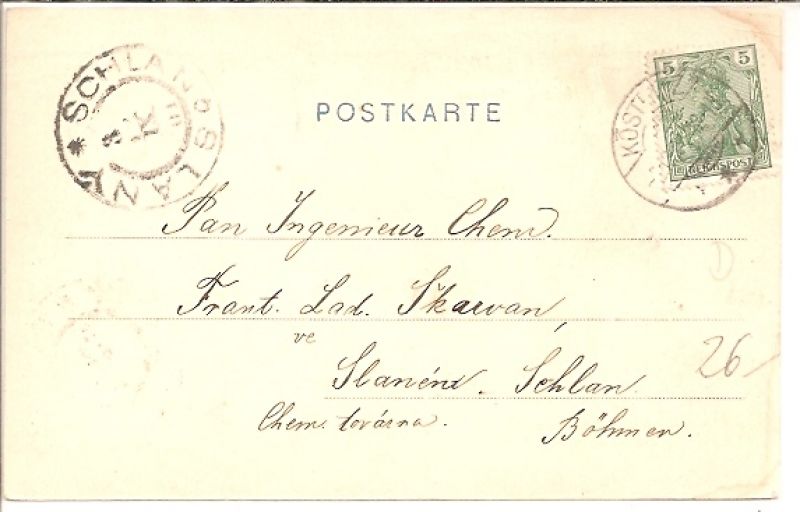 SCHLAN SLANÝ
POSTKARTE
5 5
REICHSPOST
KÖSTR
Pan Ingenieur Chem.
Frant. Lad. Škarvan,
ve
Slaném. Schlan
Chem. továrna. Böhmen.
26